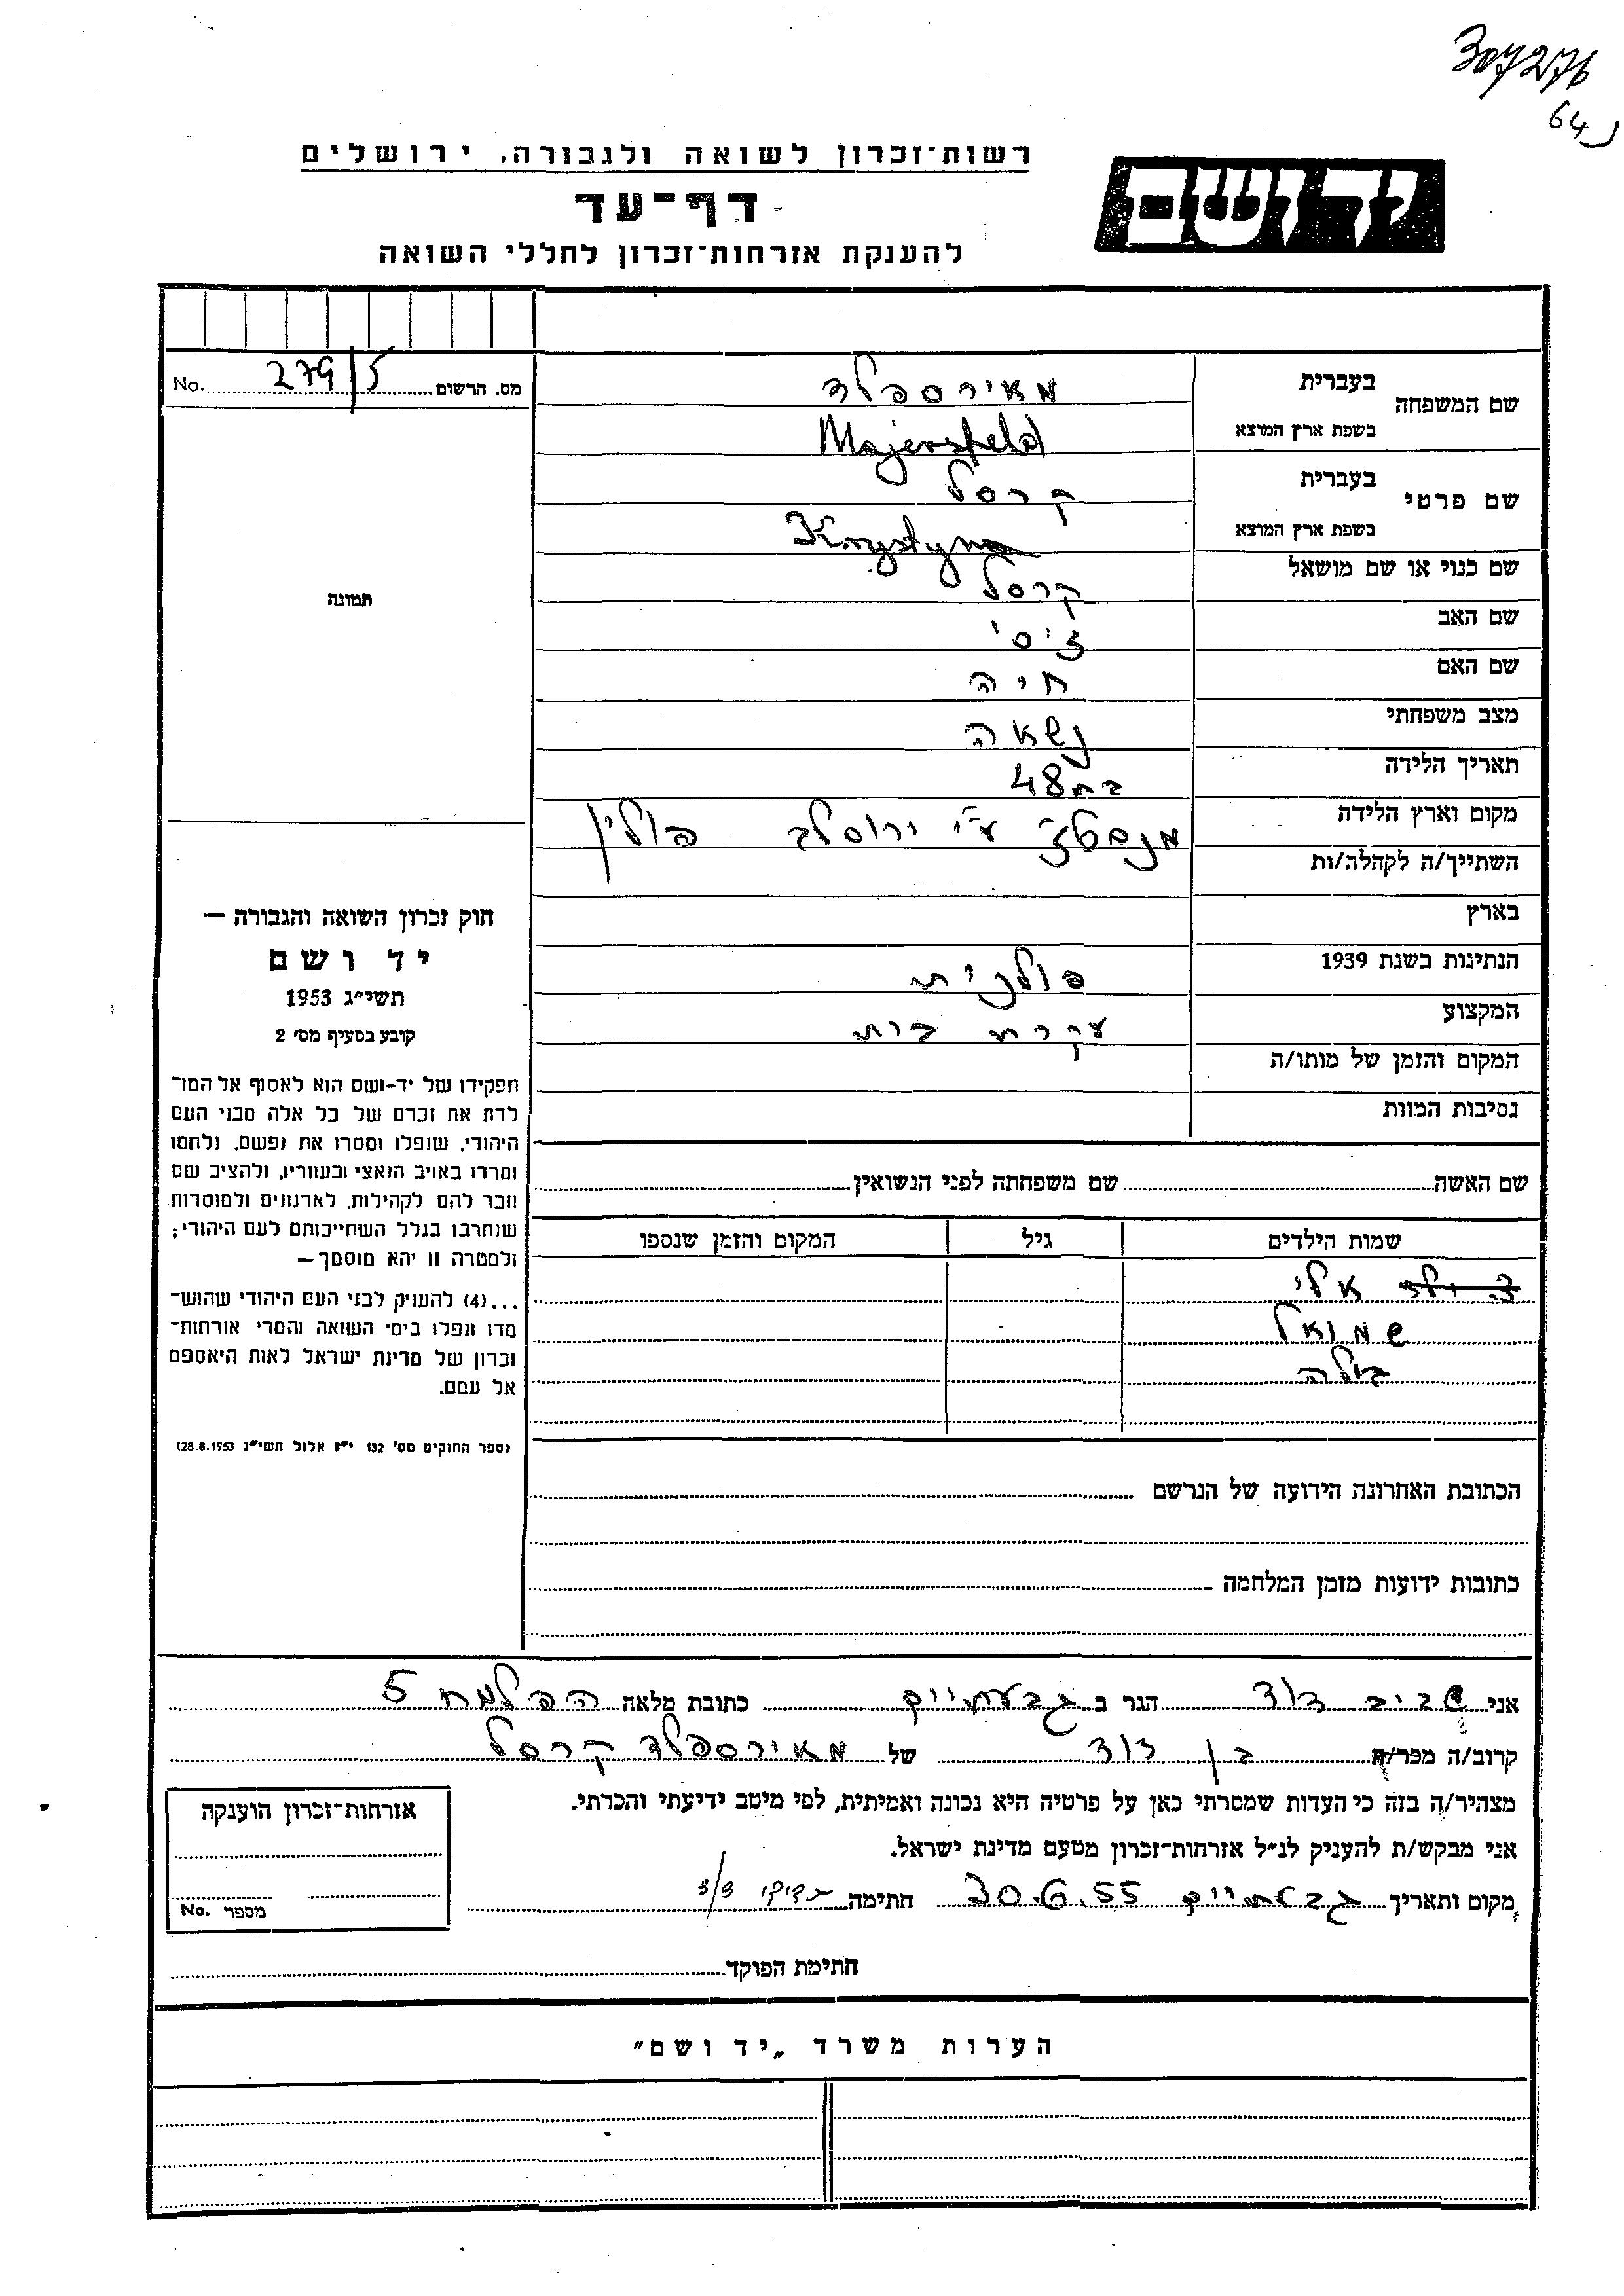 307276
64 נ
יד ושם
רשות־זכרון לשואה ולגבורה, ירושלים
דף־עד
להענקת אזרחות־זכרון לחללי השואה
מס. הרשום 279/5 No.
שם המשפחה
בעברית מאירספלד
בשפת ארץ המוצא Majersfeld
שם פרטי
בעברית קרסל
בשפת ארץ המוצא Krystyna
שם כנוי או שם מושאל קרסל
שם האב זיסי
שם האם חיה
מצב משפחתי נשאה
תאריך הלידה בת 48
מקום וארץ הלידה ע״י ירוסלב פולין
השתייך/ה לקהלה/ות
בארץ
הנתינות בשנת 1939 פולנית
המקצוע עקרת בית
המקום והזמן של מותו/ה
נסיבות המוות
שם האשה שם משפחתה לפני הנשואין
שמות הילדים גיל המקום והזמן שנספו
אלי
שמואל
בילה
הכתובת האחרונה הידועה של הנרשם
כתובות ידועות מזמן המלחמה
תמונה
חוק זכרון השואה והגבורה —
יד ושם
תשי״ג 1953
קובע בסעיף מס׳ 2
תפקידו של יד-ושם הוא לאסוף אל המו־
לדת את זכרם של כל אלה מבני העם
היהודי, שנפלו ומסרו את נפשם, נלחמו
ומרדו באויב הנאצי ובעוזריו, ולהציב שם
וזכר להם לקהילות, לארגונים ולמוסדות
שנחרבו בגלל השתייכותם לעם היהודי;
ולמטרה זו יהא מוסמך —
...(4) להעניק לבני העם היהודי שהוש־
מדו ונפלו בימי השואה והמרי אזרחות־
זכרון של מדינת ישראל לאות היאספם
אל עמם.
(ספר החוקים מס׳ 132 י״ז אלול תשי״ג 28.8.1953)
אני שביב דוד הגר ב גבעתיים כתובת מלאה הפלמח 5
קרוב/ה מכר/ה בן דוד של מאירספלד קרסל
מצהיר/ה בזה כי העדות שמסרתי כאן על פרטיה היא נכונה ואמיתית, לפי מיטב ידיעתי והכרתי.
אני מבקש/ת להעניק לנ״ל אזרחות־זכרון מטעם מדינת ישראל.
מקום ותאריך גבעתיים 30.6.55 חתימה
אזרחות־זכרון הוענקה
מספר No.
חתימת הפוקד
הערות משרד „יד ושם״